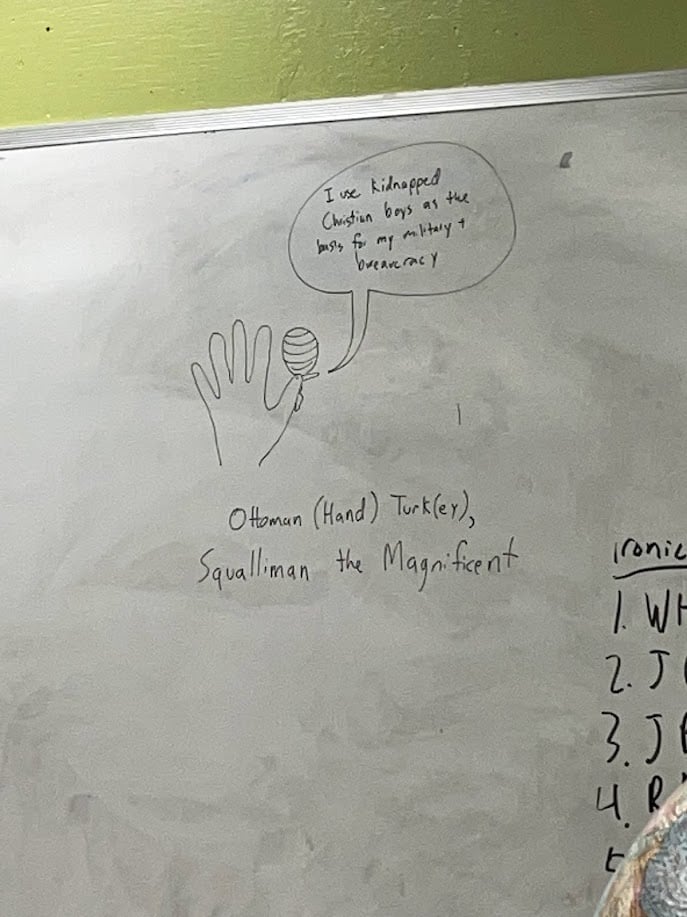 I use kidnapped
Christian boys as the
basis for my military +
bureaucracy
Ottoman (Hand) Turk(ey),
Squalliman the Magnificent
ironic
1. WH
2. J
3. J
4. R